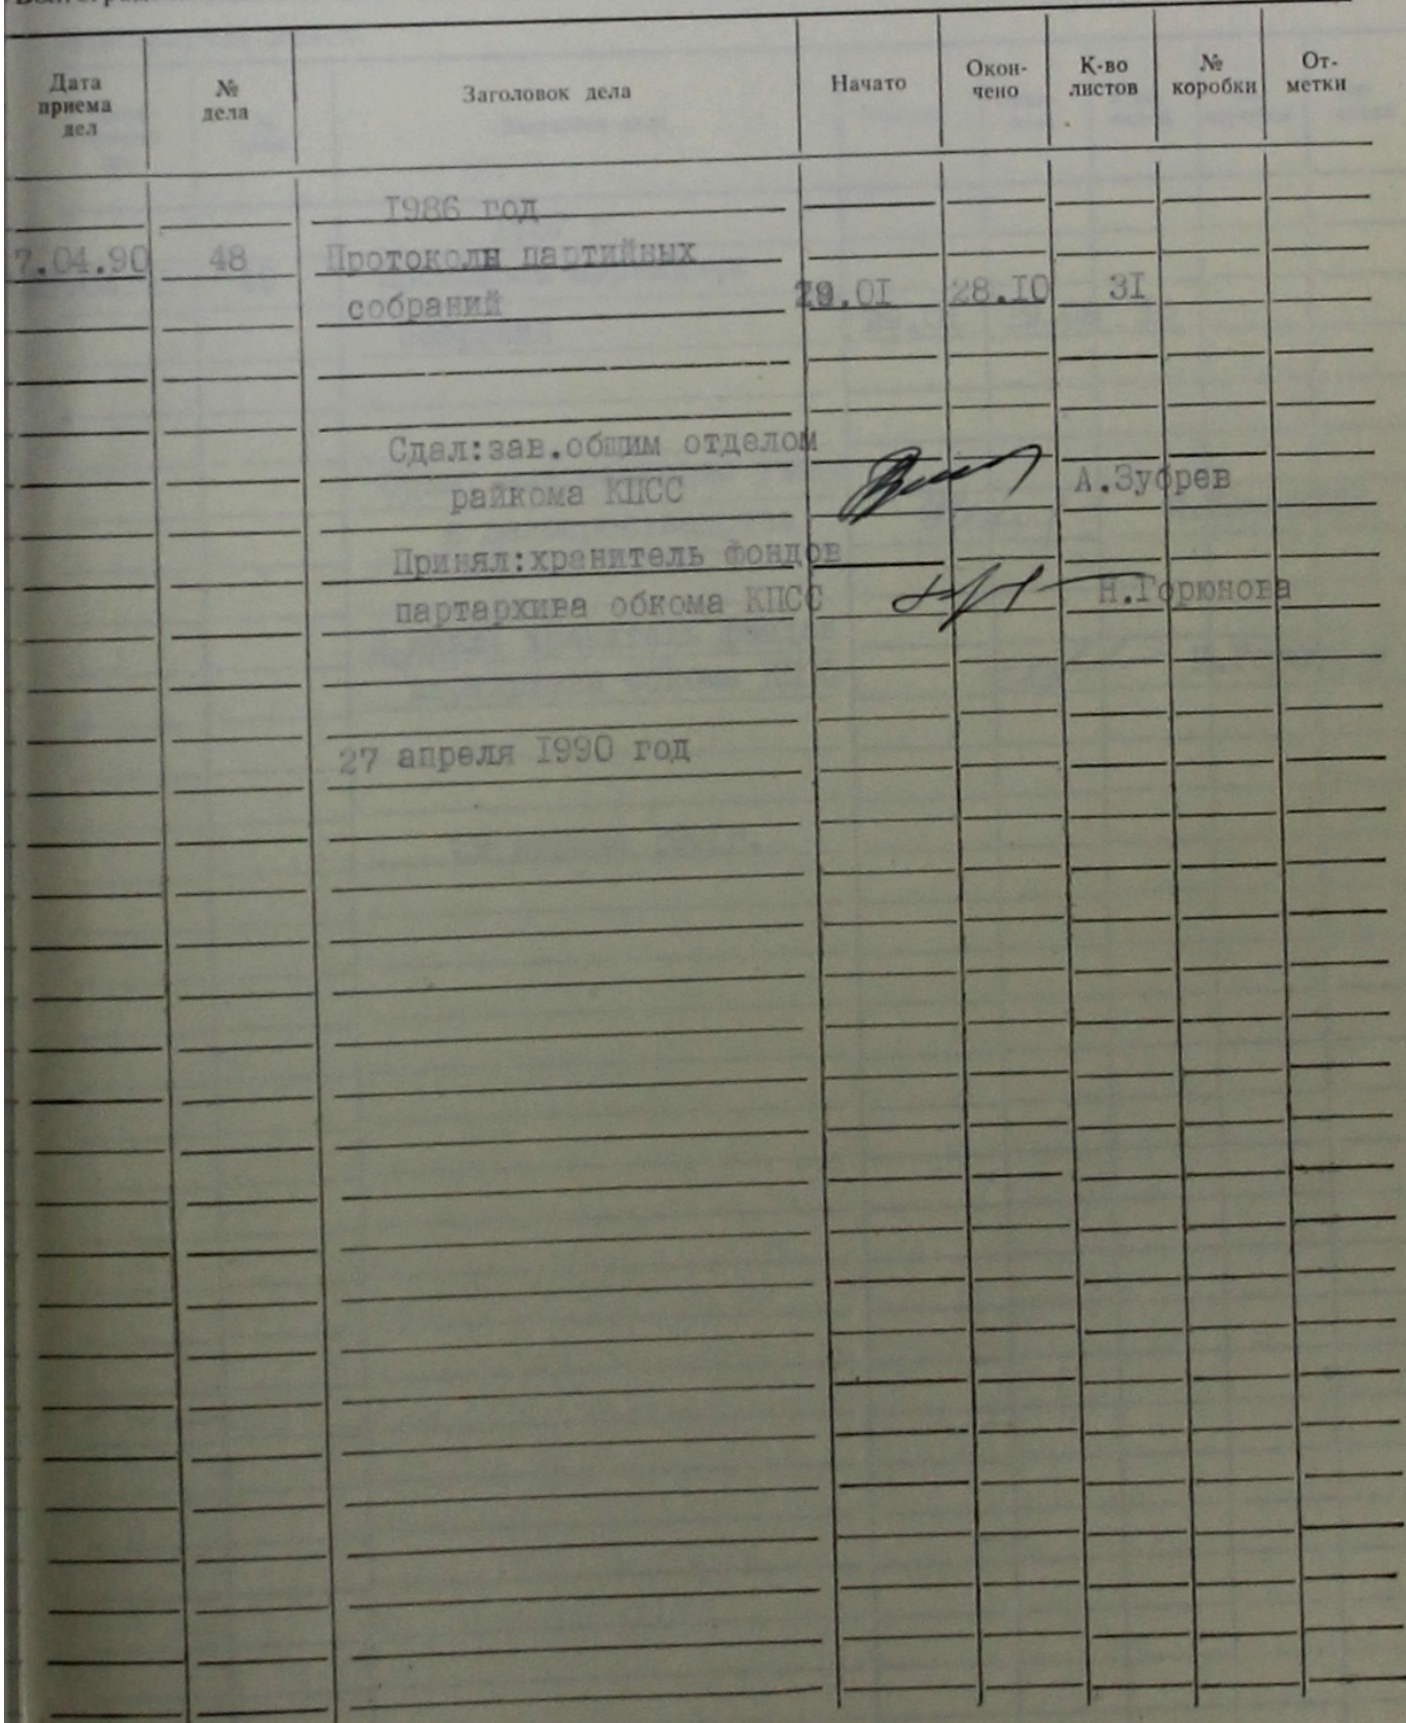 Дата приема дел
№ дела
Заголовок дела
Начато
Окон-
чено
К-во листов
№ коробки
От-
метки
I986 год
7.04.90 48 Протоколы партийных
собраний 28.IO 3I
Сдал:зав.общим отделом
райкома КПСС А.Зубрев
Принял:хранитель фондов
партархива обкома КПСС Н.Горюнова
27 апреля I990 год